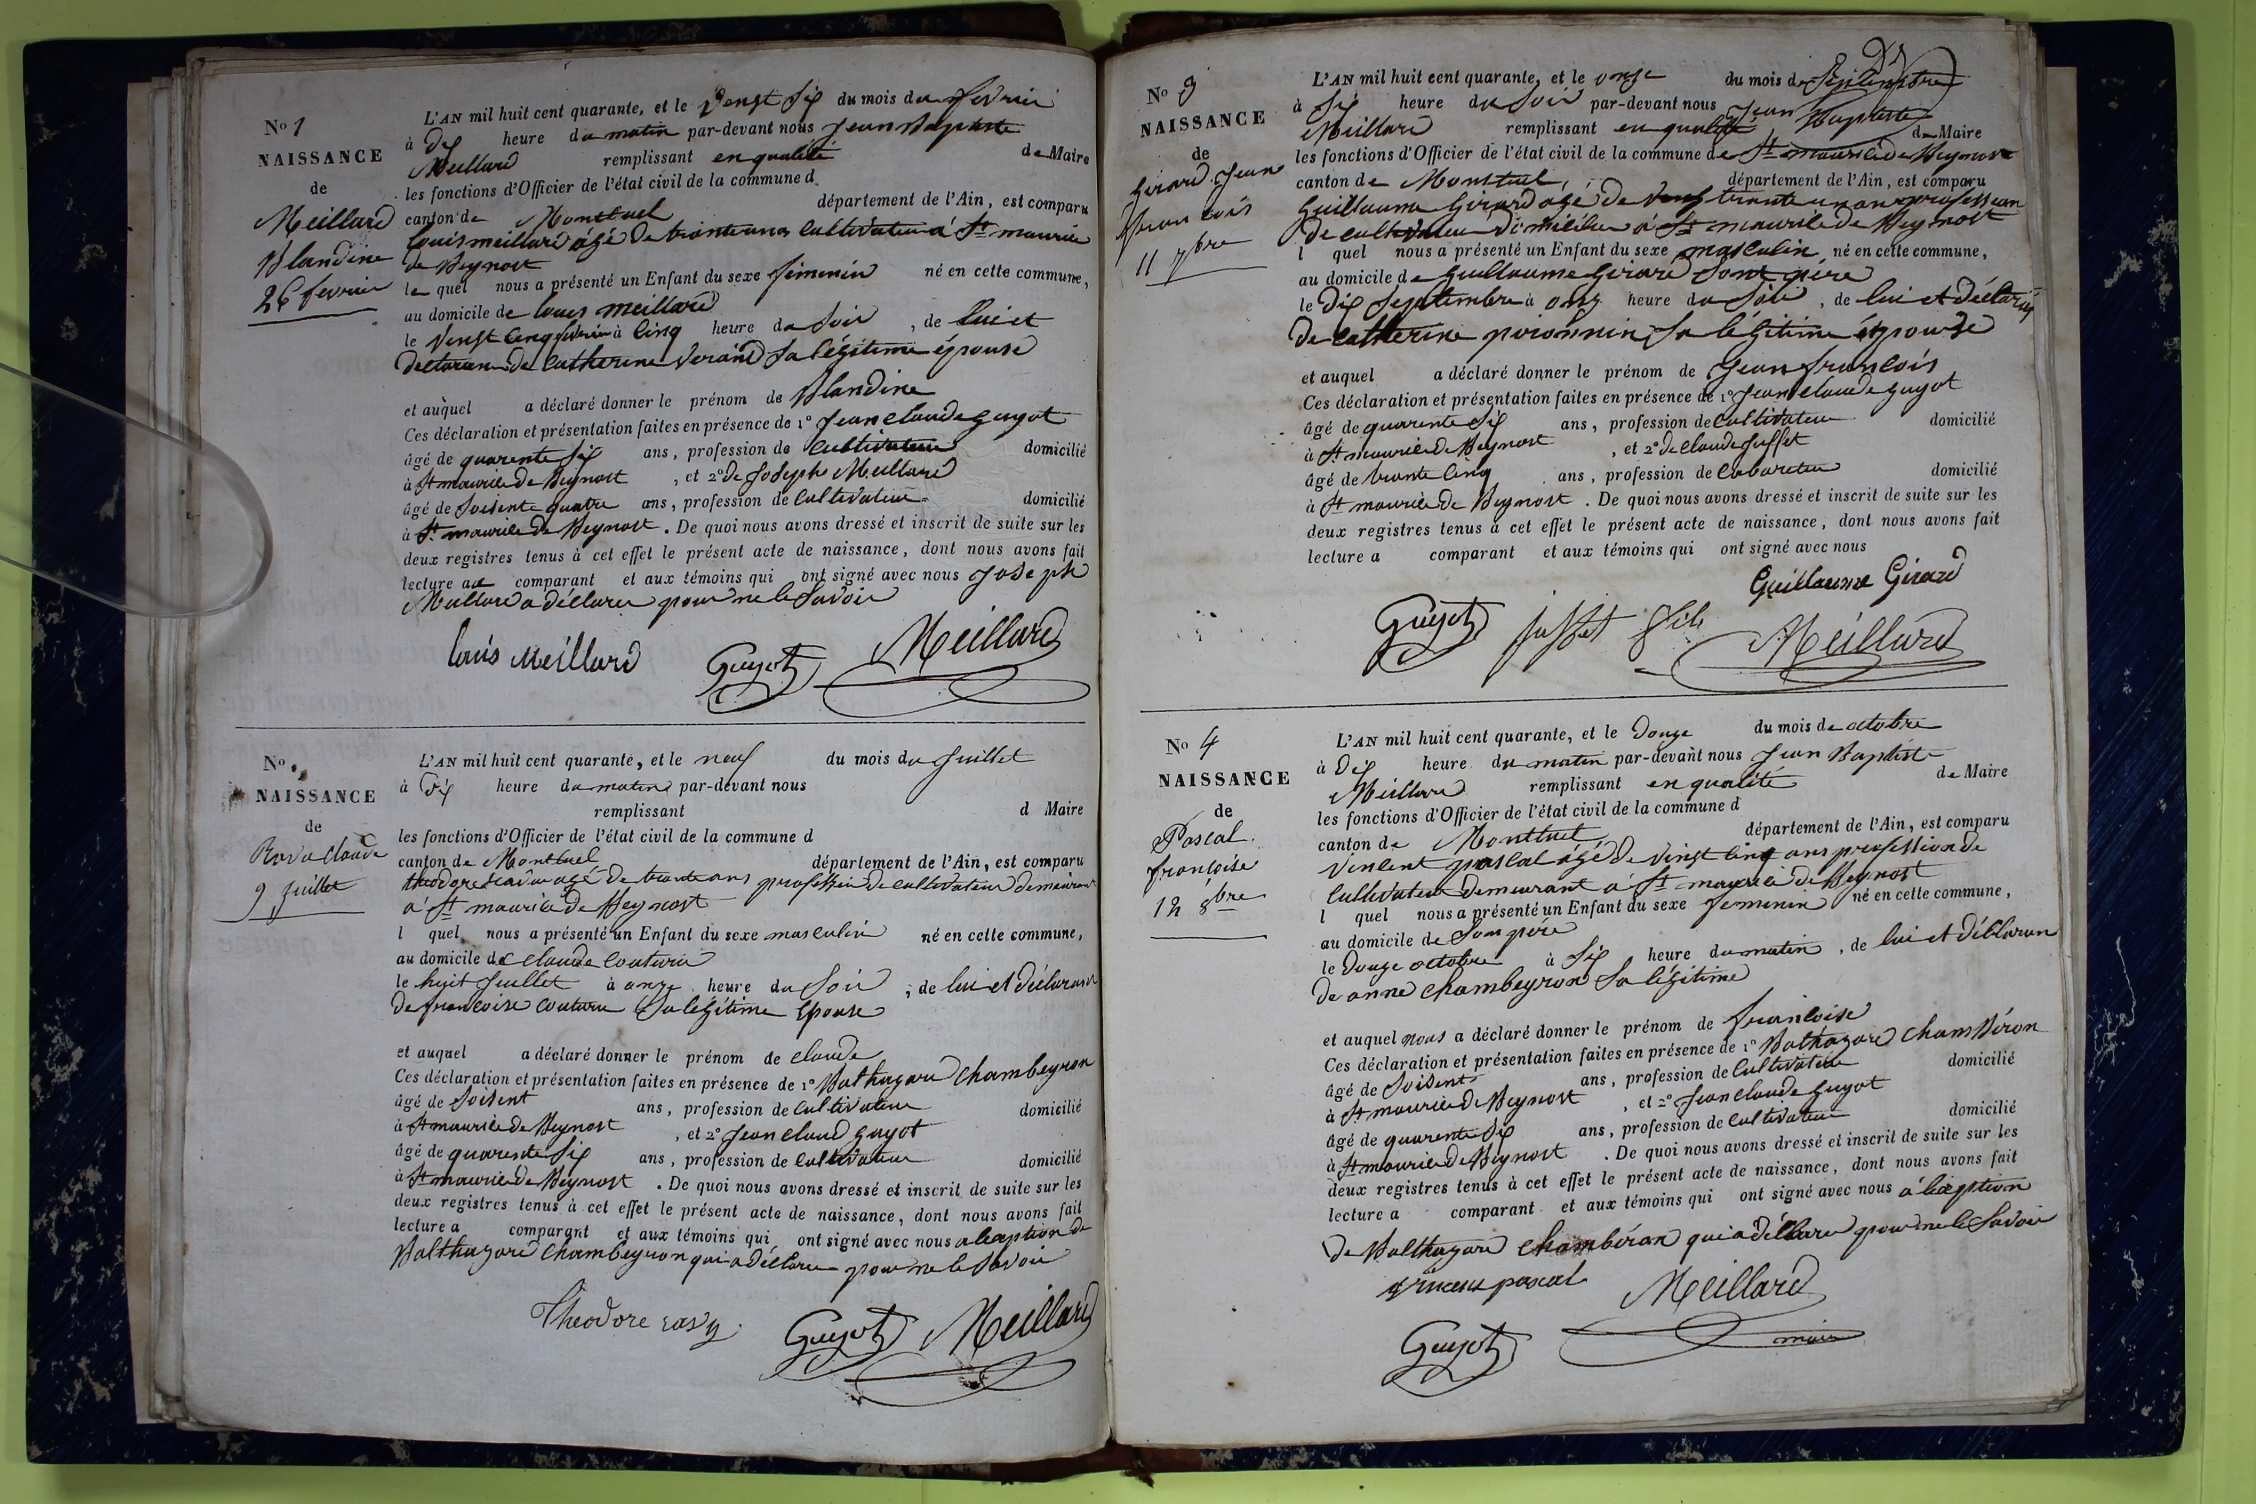 No 1
NAISSANCE
de
Meillard
Blandine
26 fevrier
L'AN mil huit cent quarante, et le vengt Six du mois de fevrier
à Dix heure du matin par-devant nous Jean Baptiste
Meillard remplissant en qualité de Maire
les fonctions d'Officier de l'état civil de la commune d
canton de Montluel département de l'Ain, est comparu
Louis meillard âgé de trente ans Cultivateur à St maurice
de Beynost
le quel nous a présenté un Enfant du sexe feminin né en cette commune,
au domicile de louis meillard
le vingt cinq fevrier à Cinq heure du Soir, de lui et
declarant de Catherine Sa légitime épouse
et auquel a déclaré donner le prénom de Blandine
Ces déclaration et présentation faites en présence de 1° Jean claude guyot
âgé de quarente Six ans, profession de Cultivateur domicilié
à St maurice de Beynost, et 2° de Joseph Meillard
âgé de Soisente quatre ans, profession de Cultivateur domicilié
à St maurice de Beynost. De quoi nous avons dressé et inscrit de suite sur les
deux registres tenus à cet effet le présent acte de naissance, dont nous avons fait
lecture au comparant et aux témoins qui ont signé avec nous Joseph
Meillard a déclarer pour ne le Savoir
louis Meillard Guyot Meillard
No
NAISSANCE
de
Claude
9 Juillet
L'AN mil huit cent quarante, et le neuf du mois du Juillet
à Dix heure du matin par-devant nous
remplissant d Maire
les fonctions d'Officier de l'état civil de la commune d
canton de Montluel département de l'Ain, est comparu
théodore âgé de trente ans profession de cultivateur demeurant
à St maurice de Beynost
l quel nous a présenté un Enfant du sexe masculin né en cette commune,
au domicile de Claude Couturier
le huit Juillet à onze heure du Soir, de lui et déclarant
de francoise couturier Sa légitime Epouse
et auquel a déclaré donner le prénom de Claude
Ces déclaration et présentation faites en présence de 1° Balthazard Chambeyron
âgé de Soisent ans, profession de Cultivateur domicilié
à St maurice de Beynost, et 2° Jean Claud guyot
âgé de quarente Six ans, profession de Cultivateur domicilié
à St maurice de Beynost. De quoi nous avons dressé et inscrit de suite sur les
deux registres tenus à cet effet le présent acte de naissance, dont nous avons fait
lecture a comparant et aux témoins qui ont signé avec nous a leaption de
Balthazard Chambeyron qui a déclarer pour ne le Savoir
Théodore Guyot Meillard
No 3
NAISSANCE
de
Girard Jean
francois
11 7bre
L'AN mil huit cent quarante, et le onze du mois de Septembre
à Six heure du Soir par-devant nous Jean Baptiste
Meillard remplissant en qualité de Maire
les fonctions d'Officier de l'état civil de la commune de St maurice de Beynost
canton de Montluel, département de l'Ain, est comparu
Guillaume Girard âgé de trente un an profession
de cultivateur Domicilier à St maurice de Beynost
l quel nous a présenté un Enfant du sexe masculin né en cette commune,
au domicile de Guillaume Girard Sont père
le Dix Septembre à onze heure du Soir, de lui et déclarés
de Catherine Sa légitime épouse
et auquel a déclaré donner le prénom de Jean francois
Ces déclaration et présentation faites en présence de 1° Jean Claude guyot
âgé de quarente Six ans, profession de Cultivateur domicilié
à St maurice de Beynost, et 2° de Claude Juffet
âgé de trente Cinq ans, profession de Cabareteur domicilié
à St maurice de Beynost. De quoi nous avons dressé et inscrit de suite sur les
deux registres tenus à cet effet le présent acte de naissance, dont nous avons fait
lecture a comparant et aux témoins qui ont signé avec nous
Guillaume Girard
Guyot Juffet fils Meillard
No 4
NAISSANCE
de
Pascal
francoise
12 8bre
L'AN mil huit cent quarante, et le Douze du mois de octobre
à Dix heure du matin par-devant nous Jean Baptiste
Meillard remplissant en qualité de Maire
les fonctions d'Officier de l'état civil de la commune d
canton de Montluel, département de l'Ain, est comparu
Vincent pascal âgé de vingt cinq ans profession de
Cultivateur demeurant à St maurice de Beynost
l quel nous a présenté un Enfant du sexe feminin né en cette commune,
au domicile de Son père
le Douze octobre à Six heure du matin, de lui et déclaran
de anne Chambeyron Sa légitime
et auquel nous a déclaré donner le prénom de francoise
Ces déclaration et présentation faites en présence de 1° Balthazard Chambéron
âgé de Soisent ans, profession de Cultivateur domicilié
à St maurice de Beynost, et 2° Jean Claude guyot
âgé de quarente Six ans, profession de Cultivateur domicilié
à St maurice de Beynost. De quoi nous avons dressé et inscrit de suite sur les
deux registres tenus à cet effet le présent acte de naissance, dont nous avons fait
lecture a comparant et aux témoins qui ont signé avec nous à leaption
de Balthazard Chambéran qui a déclarer pour ne le Savoir
vincent pascal Meillard
Guyot maire